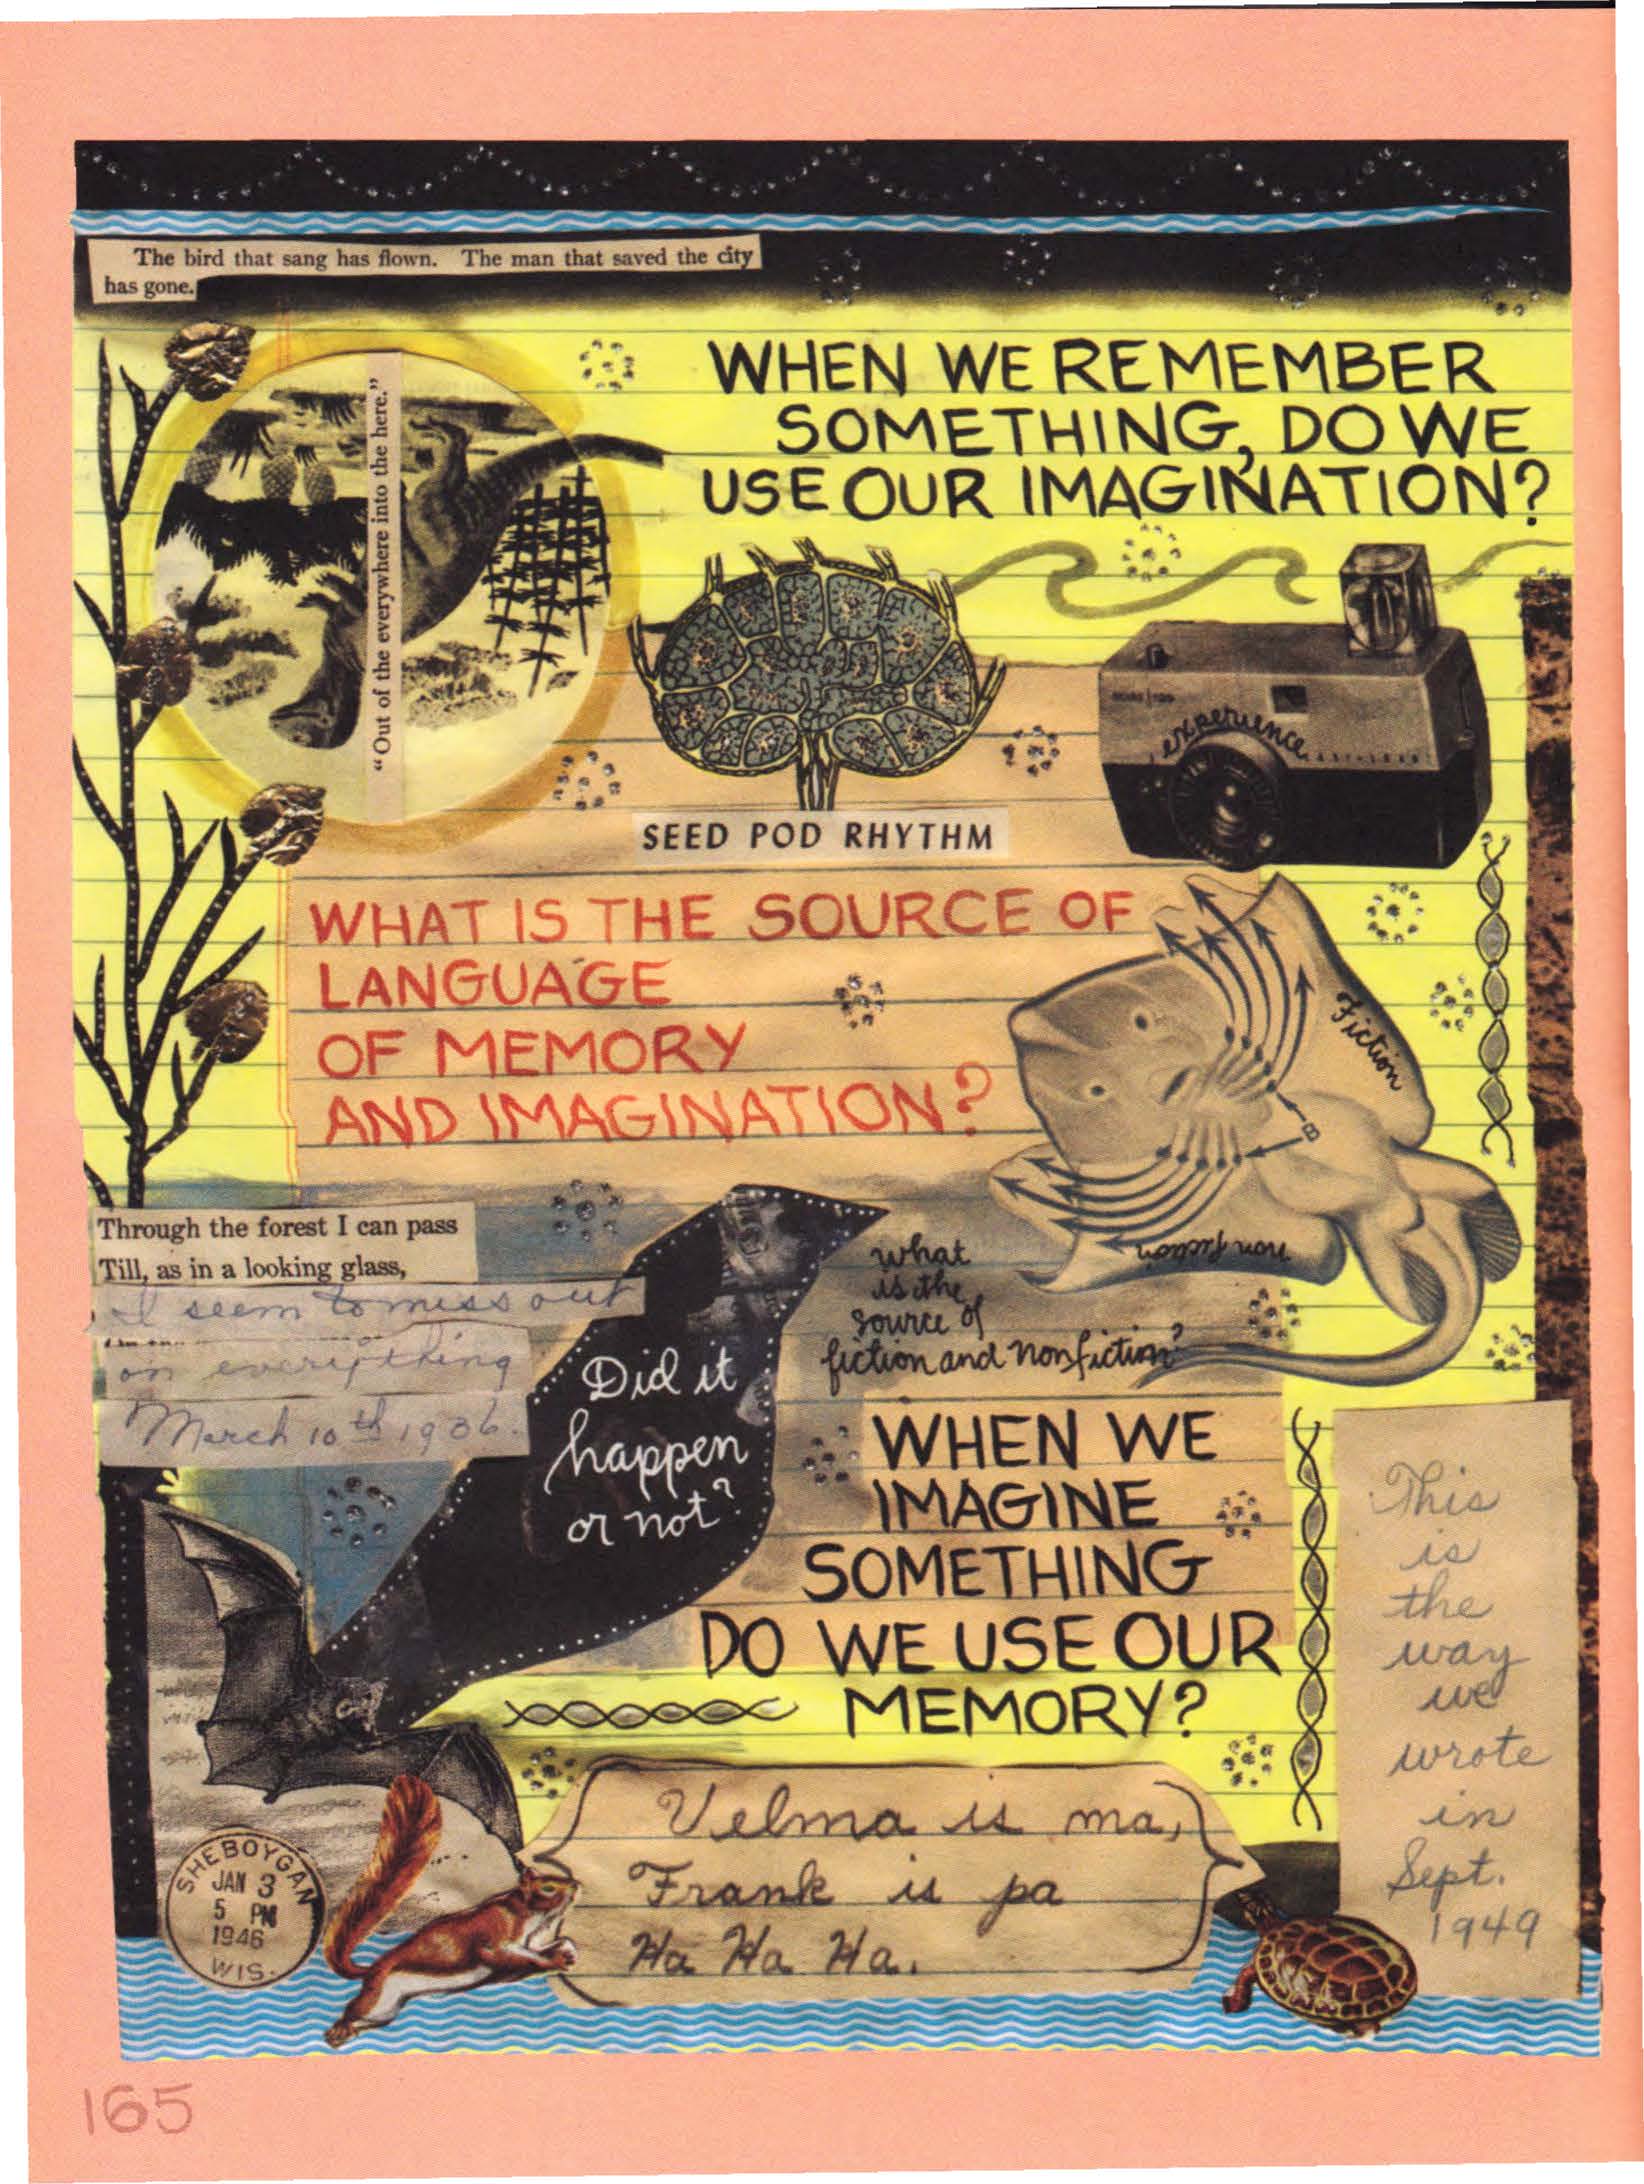 The bird that sang has flown. The man that saved the city
has gone.
WHEN WE REMEMBER
SOMETHING, DO WE
USE OUR IMAGINATION?
"Out of the everywhere into the here."
experience
SEED POD RHYTHM
WHAT IS THE SOURCE OF
LANGUAGE
OF MEMORY
AND IMAGINATION?
Fiction
B
non fiction
Through the forest I can pass
Till, as in a looking glass,
I seem to miss out
on everything
March 10th 1936.
what
is the
source of
fiction and nonfiction?
Did it
happen
or not?
WHEN WE
IMAGINE
SOMETHING
DO WE USE OUR
MEMORY?
This
is
the
way
we
wrote
in
Sept.
1949
Velma is ma,
Frank is pa
Ha Ha Ha.
SHEBOYGAN
JAN 3
5 PM
1946
WIS.
165